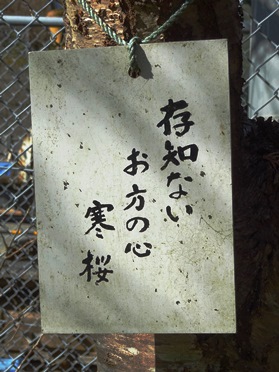 存知ない
お方の心
寒桜